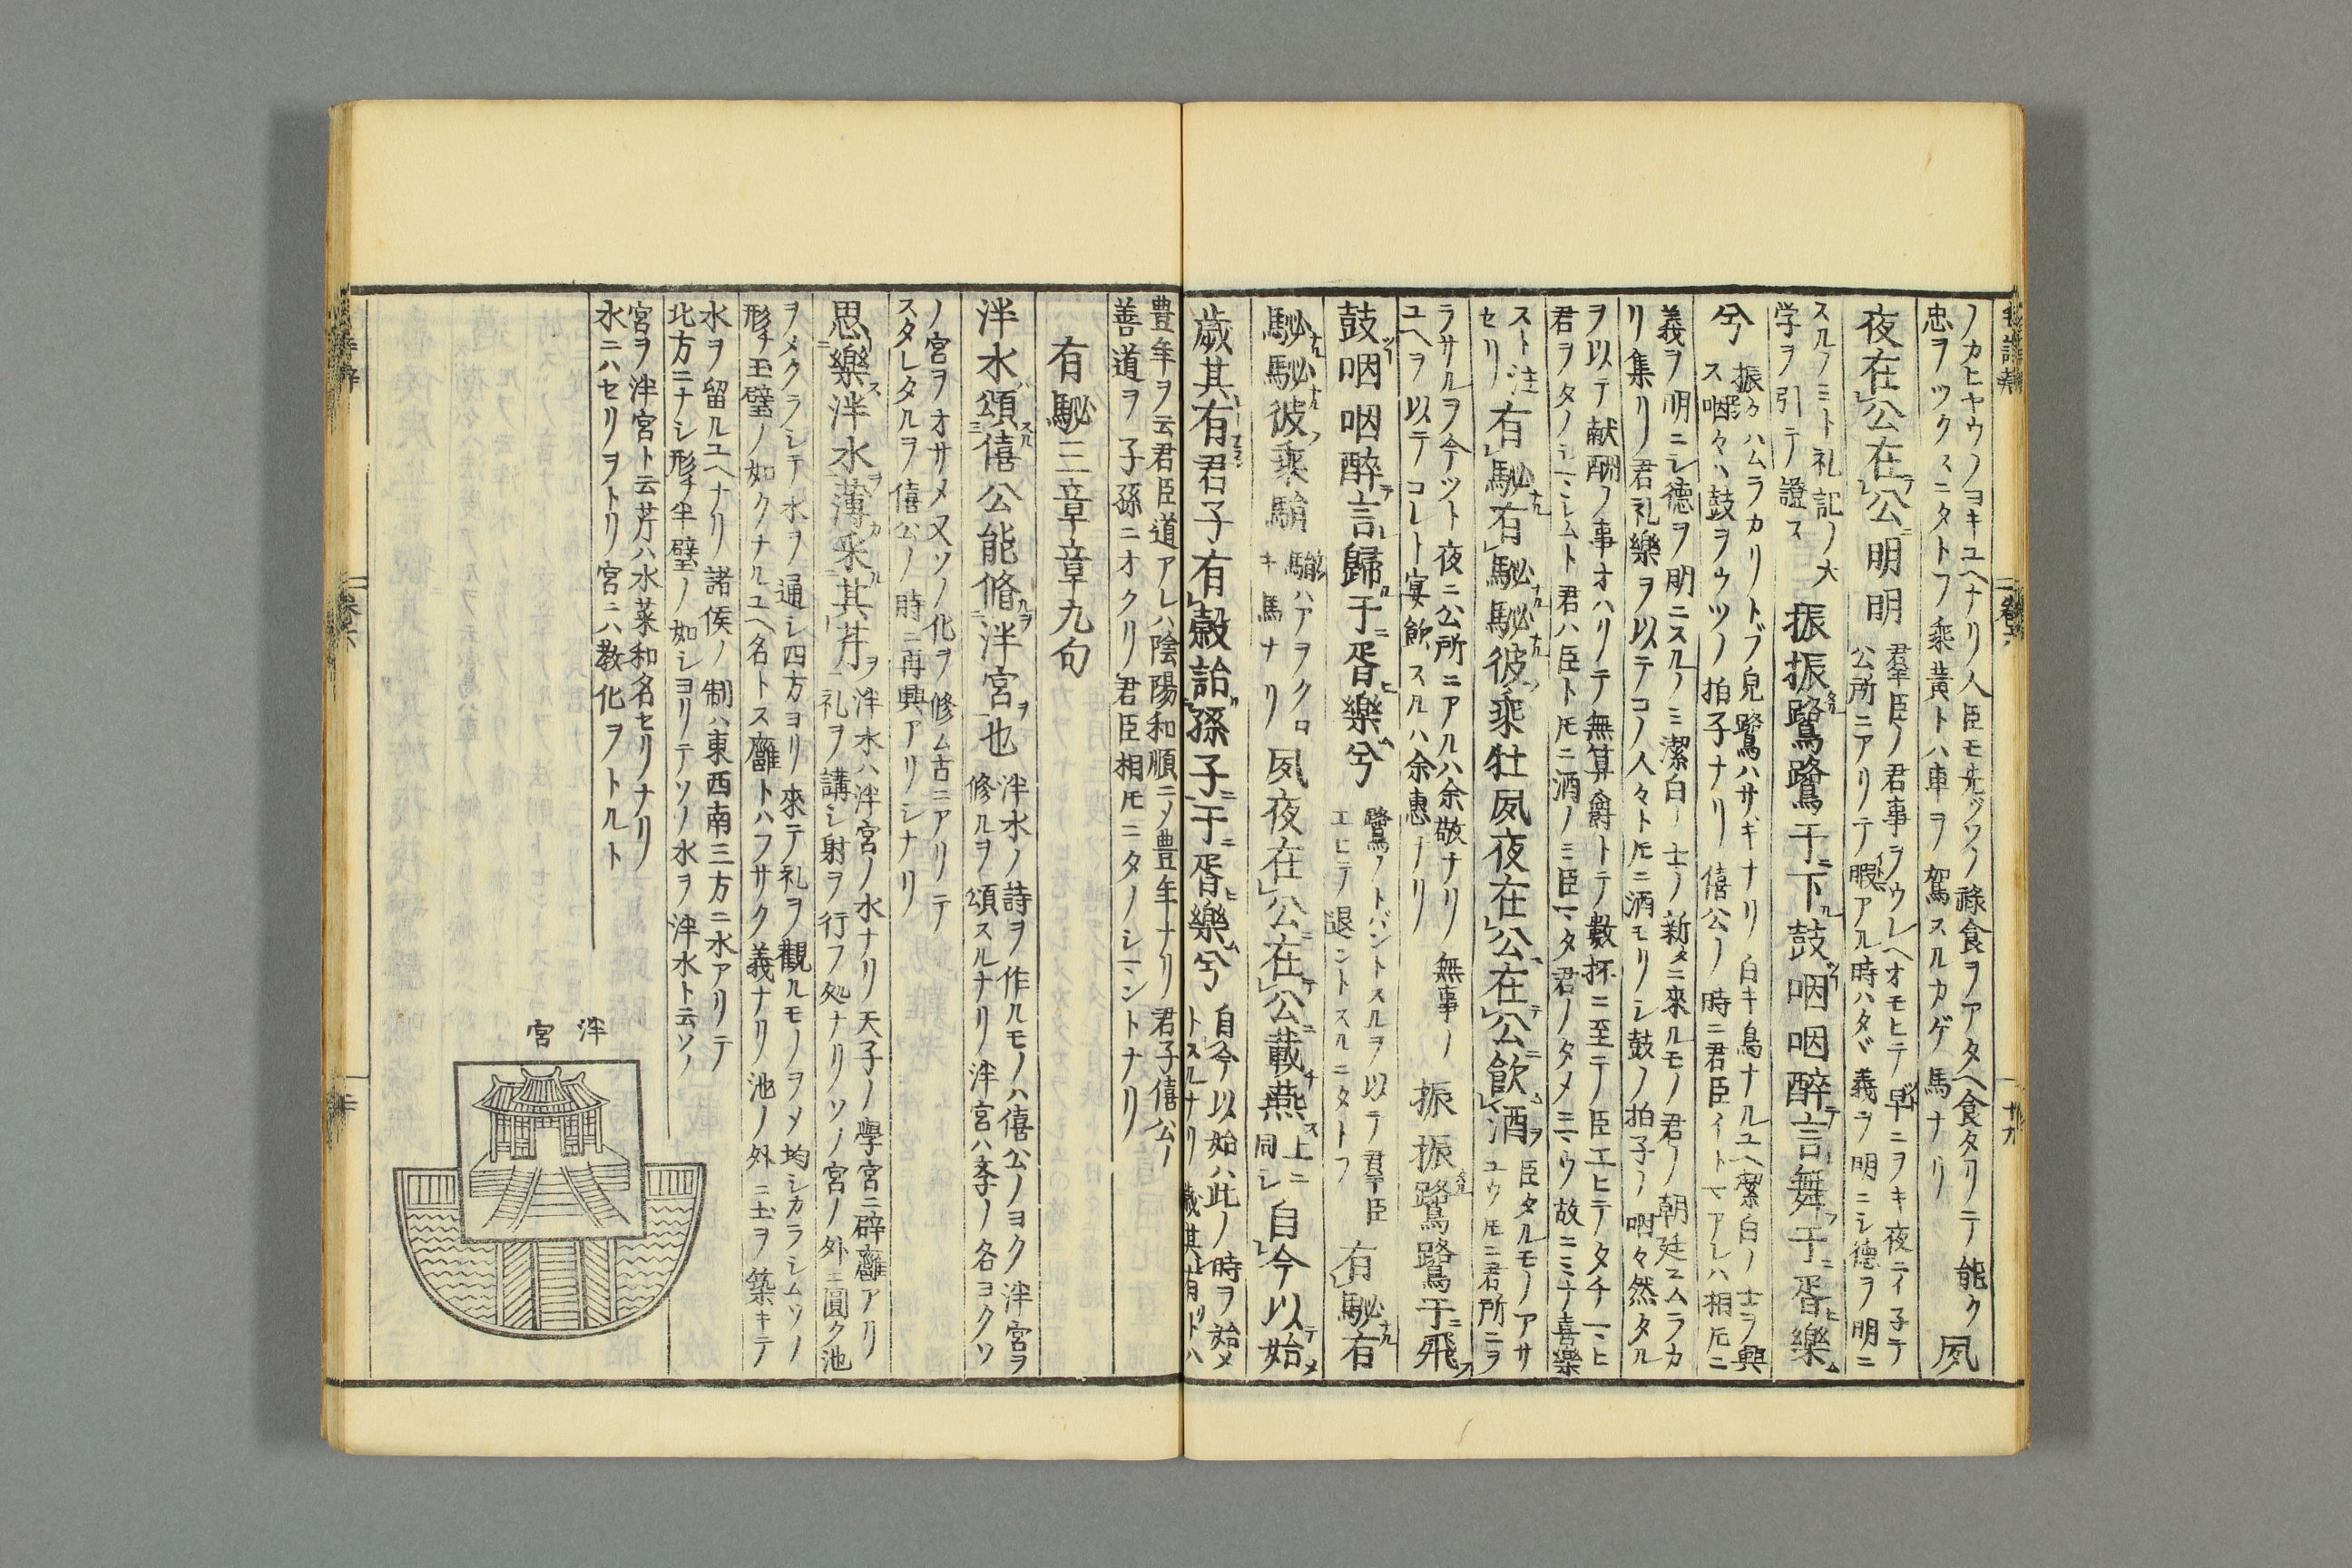 ノカヒヤウノヨキユヘナリ人臣モ先ヅソノ祿食ヲアタヘ食タリテ能ク
忠ヲツクスニタトフ乘黄トハ車ヲ駕スルカゲ馬ナリ
夙
夜在公在公明明
群臣ノ君事ヲウレヘオモヒテ早ニヲキ夜ニイ子テ
公所ニアリテ暇アル時ハタヾ義ヲ明ニシ德ヲ明ニ
スルノミト礼記ノ大
学ヲ引テ證ス
振振鷺鷺于下鼓咽咽醉言舞于胥樂
兮
振々ハムラカリトブ皃鷺ハサギナリ白キ鳥ナルユヘ潔白ノ士ヲ興
ス咽々ハ鼓ヲウツノ拍子ナリ僖公ノ時ニ君臣イトマアレハ相𪜈ニ
義ヲ明ニシ德ヲ明ニスルノミ潔白ノ士ノ新タニ來ルモノ君ノ朝廷ニムラカ
リ集リ君礼樂ヲ以テコノ人々ト𪜈ニ酒モリシ鼓ノ拍子ノ咽々然タル
ヲ以テ献酬ノ事オハリテ無算爵トテ數杯ニ至テノ臣エヒテノタチマヒ
君ヲタノシマシムト君ハ臣ト𪜈ニ酒ノミ臣マタ君ノタメニマウ故ニミナ喜樂
スト注
セリ
有駜有駜駜彼乘牡夙夜在公在公飲酒
臣タルモノアサ
ユウ𪜈ニ君所ニヲ
ラサルヲ今ツト夜ニ公所ニアルハ余敬ナリ無事ノ
ユヘヲ以テコレト宴飲スルハ余惠ナリ
振振鷺鷺于飛
鼓咽咽醉言歸于胥樂兮
鷺ノトバントスルヲ以テ群臣
エヒテ退ントスルニタトフ
有駜有
駜駜彼乘駽
驖ハアヲクロ
キ馬ナリ
夙夜在公在公載燕
上ニ
同シ
自今以始
歲其有君子有穀詒孫子于胥樂兮
自今以始ハ此ノ時ヲ始メ
トスルナリ歲其有トハ
豊年ヲ云君臣道アレハ陰陽和順ニメ豊年ナリ君子僖公ノ
善道ヲ子孫ニオクリ君臣相𪜈ニタノシマントナリ
有駜三章章九句
泮水頌僖公能脩泮宮也
泮水ノ詩ヲ作ルモノハ僖公ノヨク泮宮ヲ
修ルヲ頌スルナリ泮宮ハ孝ノ名ヨクソ
ノ宮ヲオサメ又ソノ化ヲ修ム古ニアリテ
スタレタルヲ僖公ノ時ニ再興アリシナリ
思樂泮水薄采其芹
泮水ハ泮宮ノ水ナリ天子ノ學宮ニ辟廱アリ
礼ヲ講シ射ヲ行フ処ナリソノ宮ノ外ニ圓ク池
ヲメクラシテ水ヲ通シ四方ヨリ來テ礼ヲ觀ルモノヲメ均シカラシムソノ
形チ玉璧ノ如クナルユヘ名トス廱トハフサク義ナリ池ノ外ニ土ヲ築キテ
水ヲ留ルユヘナリ諸侯ノ制ハ東西南三方ニ水アリテ
北方ニナシ形チ半璧ノ如シヨリテソノ水ヲ泮水ト云ソノ
宮ヲ泮宮ト云芹ハ水菜和名セリナリ
水ニハセリヲトリ宮ニハ教化ヲトルト
泮宮